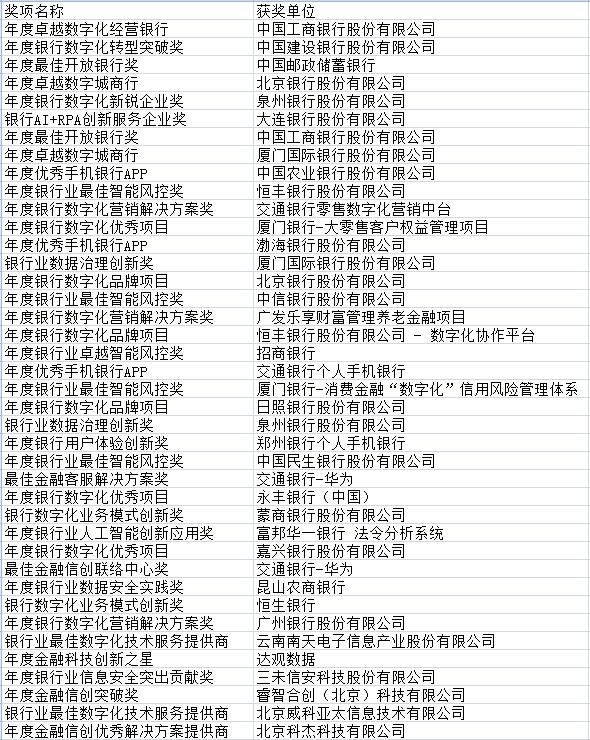 奖项名称 获奖单位
年度卓越数字化经营银行 中国工商银行股份有限公司
年度银行数字化转型突破奖 中国建设银行股份有限公司
年度最佳开放银行奖 中国邮政储蓄银行
年度卓越数字城商行 北京银行股份有限公司
年度银行数字化新锐企业奖 泉州银行股份有限公司
银行AI+RPA创新服务企业奖 大连银行股份有限公司
年度最佳开放银行奖 中国工商银行股份有限公司
年度卓越数字城商行 厦门国际银行股份有限公司
年度优秀手机银行APP 中国农业银行股份有限公司
年度银行业最佳智能风控奖 恒丰银行股份有限公司
年度银行数字化营销解决方案奖 交通银行零售数字化营销中台
年度银行数字化优秀项目 厦门银行-大零售客户权益管理项目
年度优秀手机银行APP 渤海银行股份有限公司
银行业数据治理创新奖 厦门国际银行股份有限公司
年度银行数字化品牌项目 北京银行股份有限公司
年度银行业最佳智能风控奖 中信银行股份有限公司
年度银行数字化营销解决方案奖 广发乐享财富管理养老金融项目
年度银行数字化品牌项目 恒丰银行股份有限公司 - 数字化协作平台
年度银行业卓越智能风控奖 招商银行
年度优秀手机银行APP 交通银行个人手机银行
年度银行业最佳智能风控奖 厦门银行-消费金融“数字化”信用风险管理体系
年度银行数字化品牌项目 日照银行股份有限公司
银行业数据治理创新奖 泉州银行股份有限公司
年度银行用户体验创新奖 郑州银行个人手机银行
年度银行业最佳智能风控奖 中国民生银行股份有限公司
最佳金融客服解决方案奖 交通银行-华为
年度银行数字化优秀项目 永丰银行（中国）
银行数字化业务模式创新奖 蒙商银行股份有限公司
年度银行业人工智能创新应用奖 富邦华一银行 法令分析系统
年度银行数字化优秀项目 嘉兴银行股份有限公司
最佳金融信创联络中心奖 交通银行-华为
年度银行业数据安全实践奖 昆山农商银行
银行数字化业务模式创新奖 恒生银行
年度银行数字化营销解决方案奖 广州银行股份有限公司
银行业最佳数字化技术服务提供商 云南南天电子信息产业股份有限公司
年度金融科技创新之星 达观数据
年度银行业信息安全突出贡献奖 三未信安科技股份有限公司
年度金融信创突破奖 睿智合创（北京）科技有限公司
银行业最佳数字化技术服务提供商 北京威科亚太信息技术有限公司
年度金融信创优秀解决方案提供商 北京科杰科技有限公司